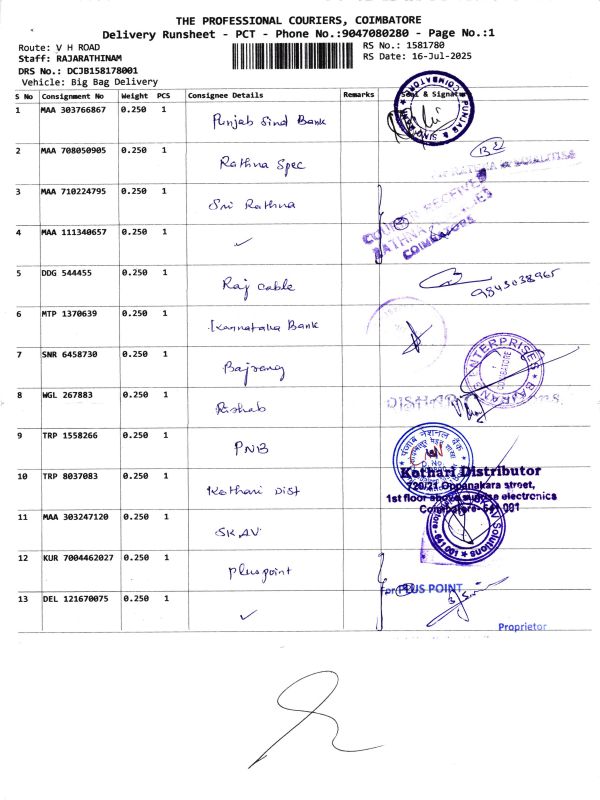 THE PROFESSIONAL COURIERS, COIMBATORE
Delivery Runsheet - PCT - Phone No.:9047080280 - Page No.:1
Route: V H ROAD
RS No.: 1581780
Staff: RAJARATHINAM
RS Date: 16-Jul-2025
DRS No.: DCJB158178001
Vehicle: Big Bag Delivery
S No Consignment No Weight PCS Consignee Details Remarks Seal & Signature
1 MAA 303766867 0.250 1 Punjab Sind Bank
2 MAA 708050905 0.250 1 Rathna Spec
3 MAA 710224795 0.250 1 Sri Rathna
COURIER RECEIVED
RATHNA
COIMBATORE
4 MAA 111340657 0.250 1 ✓
5 DDG 544455 0.250 1 Raj cable
9843038965
6 MTP 1370639 0.250 1 Karnataka Bank
7 SNR 6458730 0.250 1 Bajrang
BAJRANG ENTERPRISES
COIMBATORE
8 WGL 267883 0.250 1 Rishab
9 TRP 1558266 0.250 1 PNB
पंजाब नैशनल बैंक
10 TRP 8037083 0.250 1 Kothari Dist
Kothari Distributor
720/21,Oppanakara street,
1st floor above electronics
Coimbatore- 641 001
11 MAA 303247120 0.250 1 SKAV
SKAV Solutions
12 KUR 7004462027 0.250 1 Plus point
for PLUS POINT
13 DEL 121670075 0.250 1 ✓
Proprietor